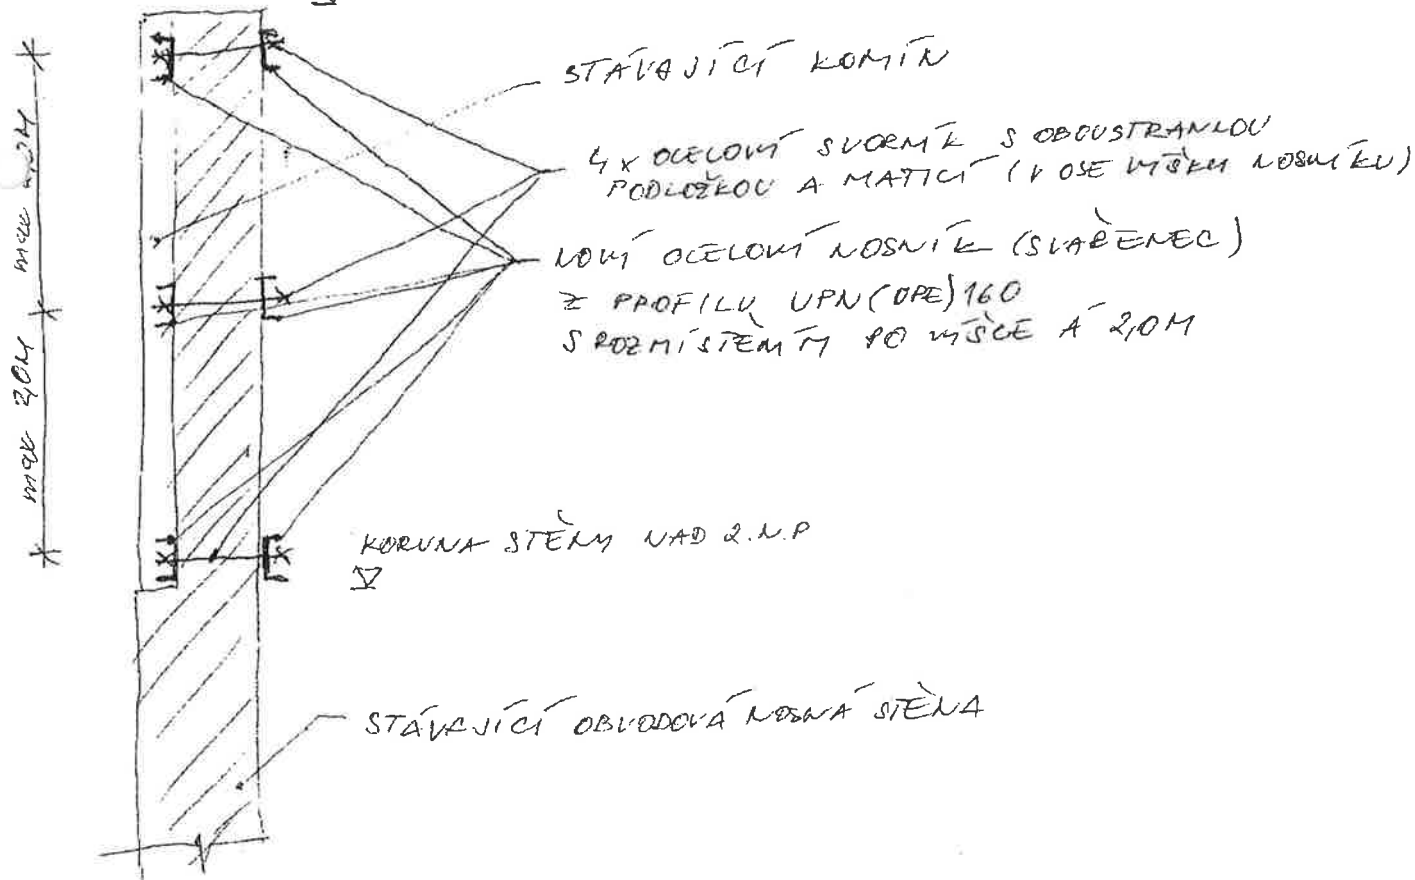 STÁVAJÍCÍ KOMÍN
4x OCELOVÝ SVORNÍK S OBOUSTRANNOU
PODLOŽKOU A MATICÍ (V OSE VÝŠKY NOSNÍKU)
NOVÝ OCELOVÝ NOSNÍK (SVAŘENEC)
Z PROFILŮ UPN(UPE)160
S ROZMÍSTĚNÍM PO VÝŠCE Á 2,0M
max
max 2,0M
KORUNA STĚNY NAD 2.N.P
STÁVAJÍCÍ OBVODOVÁ NOSNÁ STĚNA